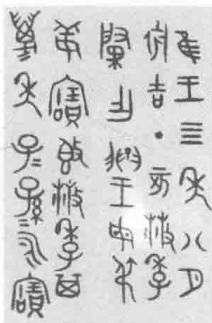 隹王四年八月
初吉丁亥散季
肇乍朕王母弔
姜寶𣪘散季其
萬年子子孫孫永寶